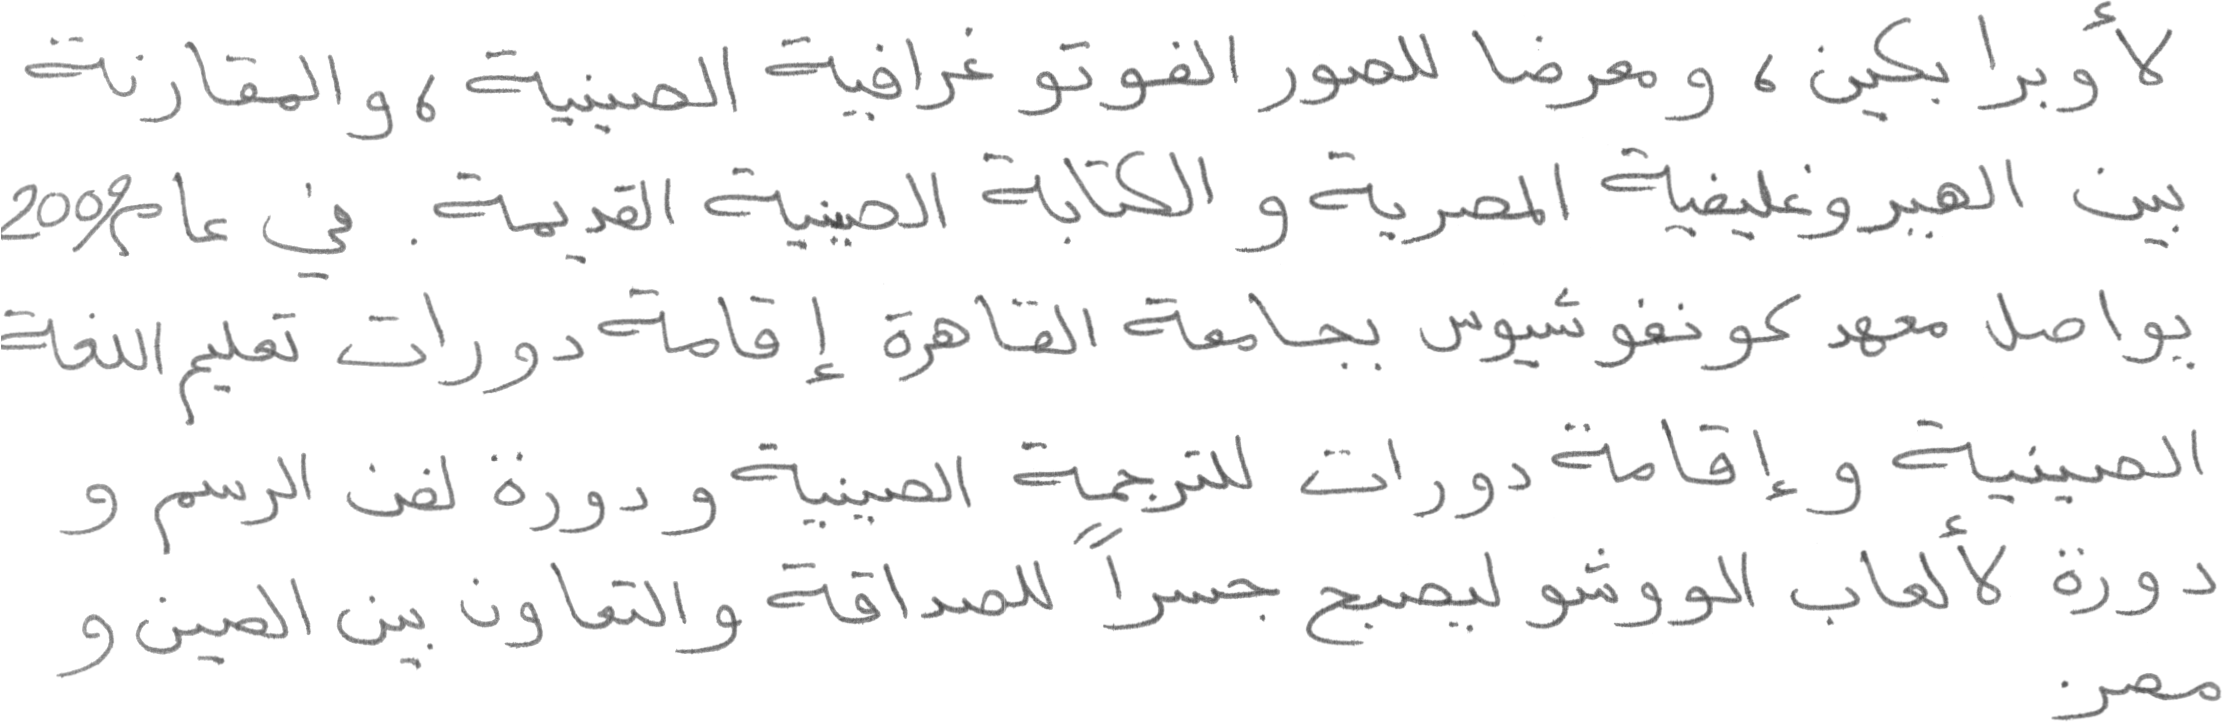 لأوبرا بكين، ومعرضا للصور الفوتوغرافية الصينية، والمقارنة
بين الهيروغليفية المصرية والكتابة الصينية القديمة. في عام 2009
يواصل معهد كونفوشيوس بجامعة القاهرة إقامة دورات تعليم اللغة
الصينية وإقامة دورات للترجمة الصينية ودورة لفن الرسم و
دورة لألعاب الووشو ليصبح جسراً للصداقة والتعاون بين الصين و
مصر.